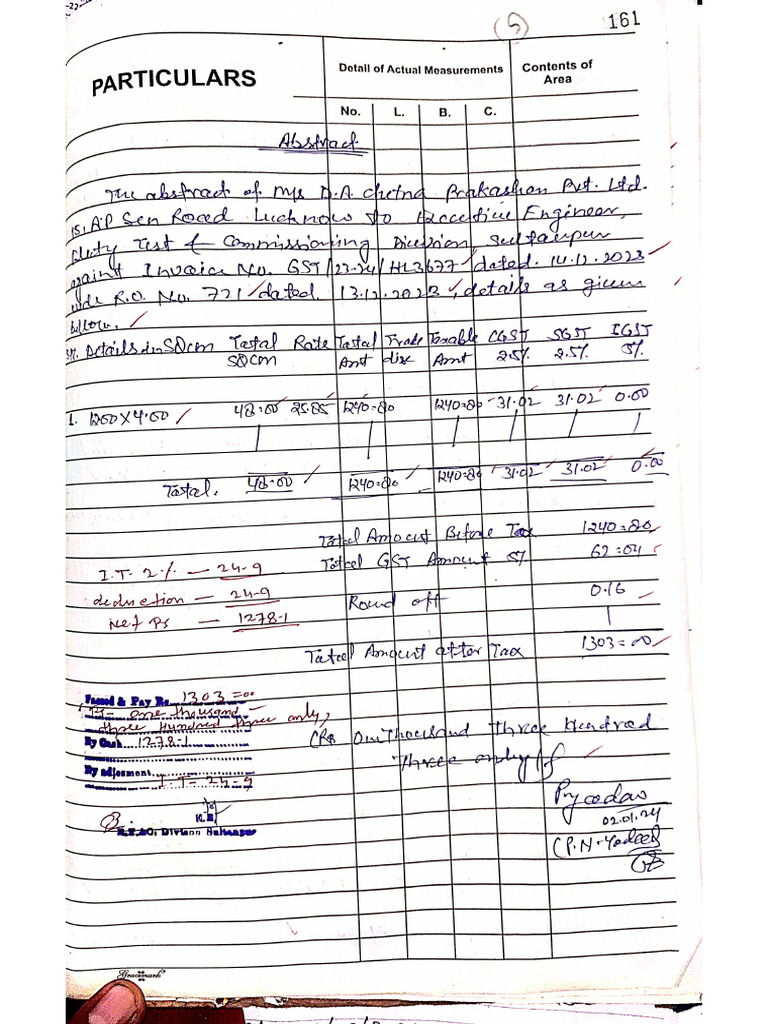 (5) 161
PARTICULARS
Detail of Actual Measurements
Contents of Area
No. L. B. C.
Abstract
The abstract of M/s D.A. Chetna Prakashan Pvt. Ltd.
15, A.P Sen Road Lucknow to Executive Engineer,
Test & Commissioning Division, Sultanpur
against Invoice No. GST/23-24/HL3677 dated. 14.12.2023
vide R.O. No. 721 dated. 13.12.2023, details as given
bellow.
Details in SQcm Total SQcm Rate Total Amt Trade dix Taxable Amt CGST 2.5% SGST 2.5% IGST 5%
1. 1200X4.00 48.00 25.85 1240=80 1240=80 31.02 31.02 0.00
Total. 48.00 1240=80 1240=80 31.02 31.02 0.00
Total Amount Before Tax 1240=80
Total GST Amount 5% 62=04
I.T. 2% — 24-9
deduction — 24-9
Round off 0.16
Net Rs — 1278-1
Total Amount after Tax 1303=00
Passed & Pay Rs. 1303=00
one thousand
three Hundred three only,
By Cash 1278-1
By adjesment
I.T-24-9
(Rs One Thousand three hundred
three only
02.01.24
(P.N. Yadav)
E.E.
Division Sultanpur
Gracemark